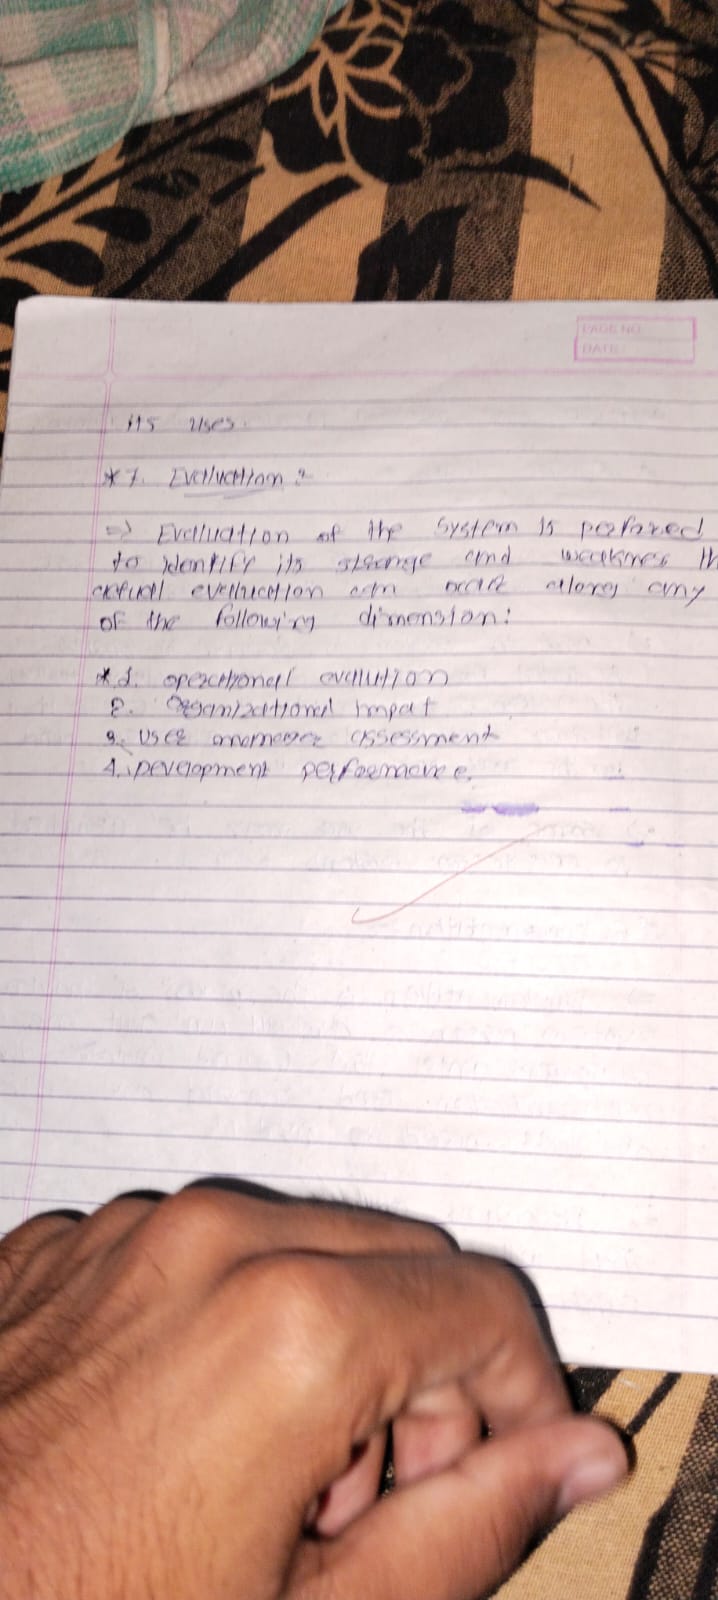 PAGE NO.
DATE:
its uses.
*7. Evaluation :-
=> Evaluation of the system is perfored
to identify its strange and weakness th
actuall evaluction can occur along any
of the following dimension:
*1. operational evalution
2. Organizational impat
3. User manager assessment
4. Development performance.